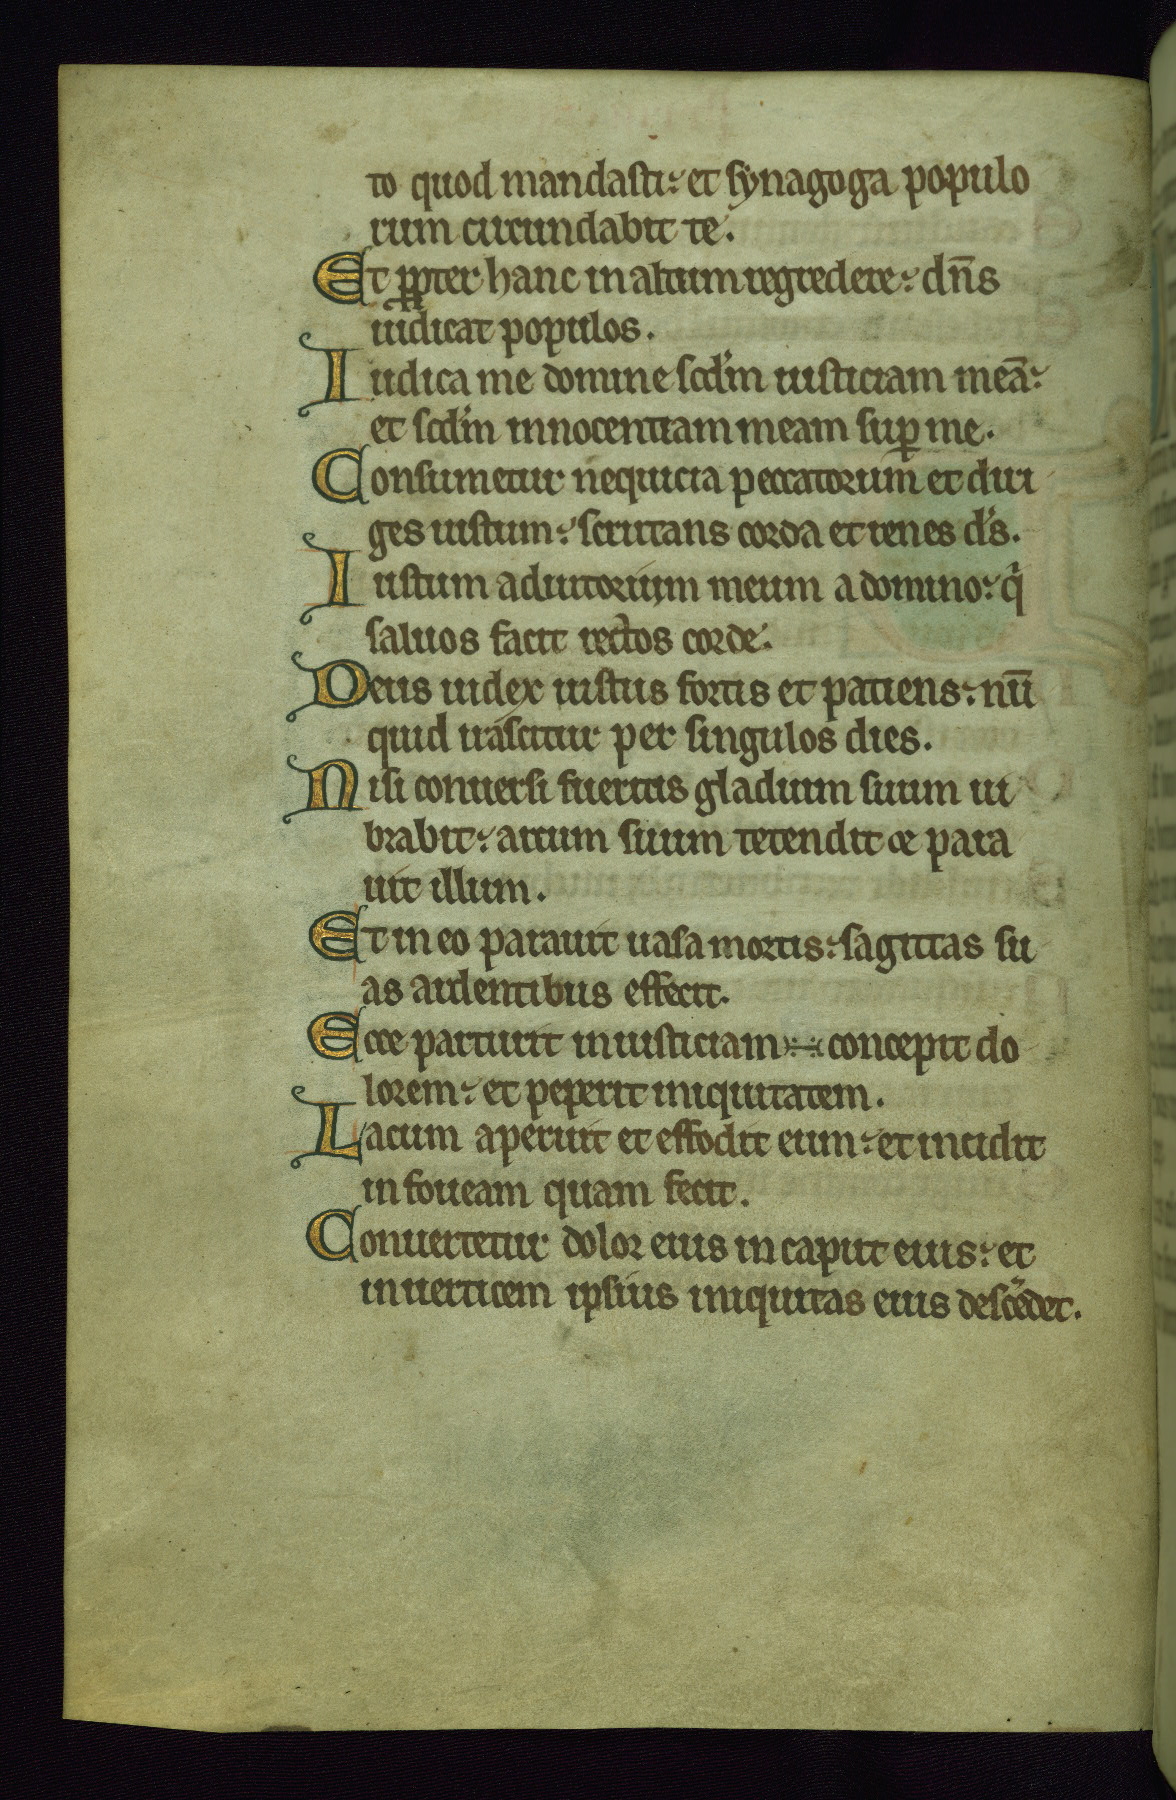 to quod mandasti: et synagoga populo
rum circundabit te.
Et ꝓpter hanc in altum regredere: dn̄s
iudicat populos.
Iudica me domine scd'm iusticiam meā:
et scd'm innocentiam meam suꝑ me.
Consumetur nequicia peccatorum et diri
ges iustum: scrutans corda et renes d's.
Iustum adiutorium meum a domino: q̇
saluos facit rectos corde.
Deus iudex iustus fortis et patiens: nū
quid irascitur per singulos dies.
Nisi conuersi fueritis gladium suum ui
brabit: arcum suum tetendit ⁊ para
uit illum.
Et in eo parauit uasa mortis: sagittas su
as ardentibus effecit.
Ecce parturit iniusticiam: concepit do
lorem: et peperit iniquitatem.
Lacum aperuit et effodit eum: et incidit
in foueam quam fecit.
Conuertetur dolor eius in caput eius: et
in uerticem ipsius iniquitas eius descēdet.